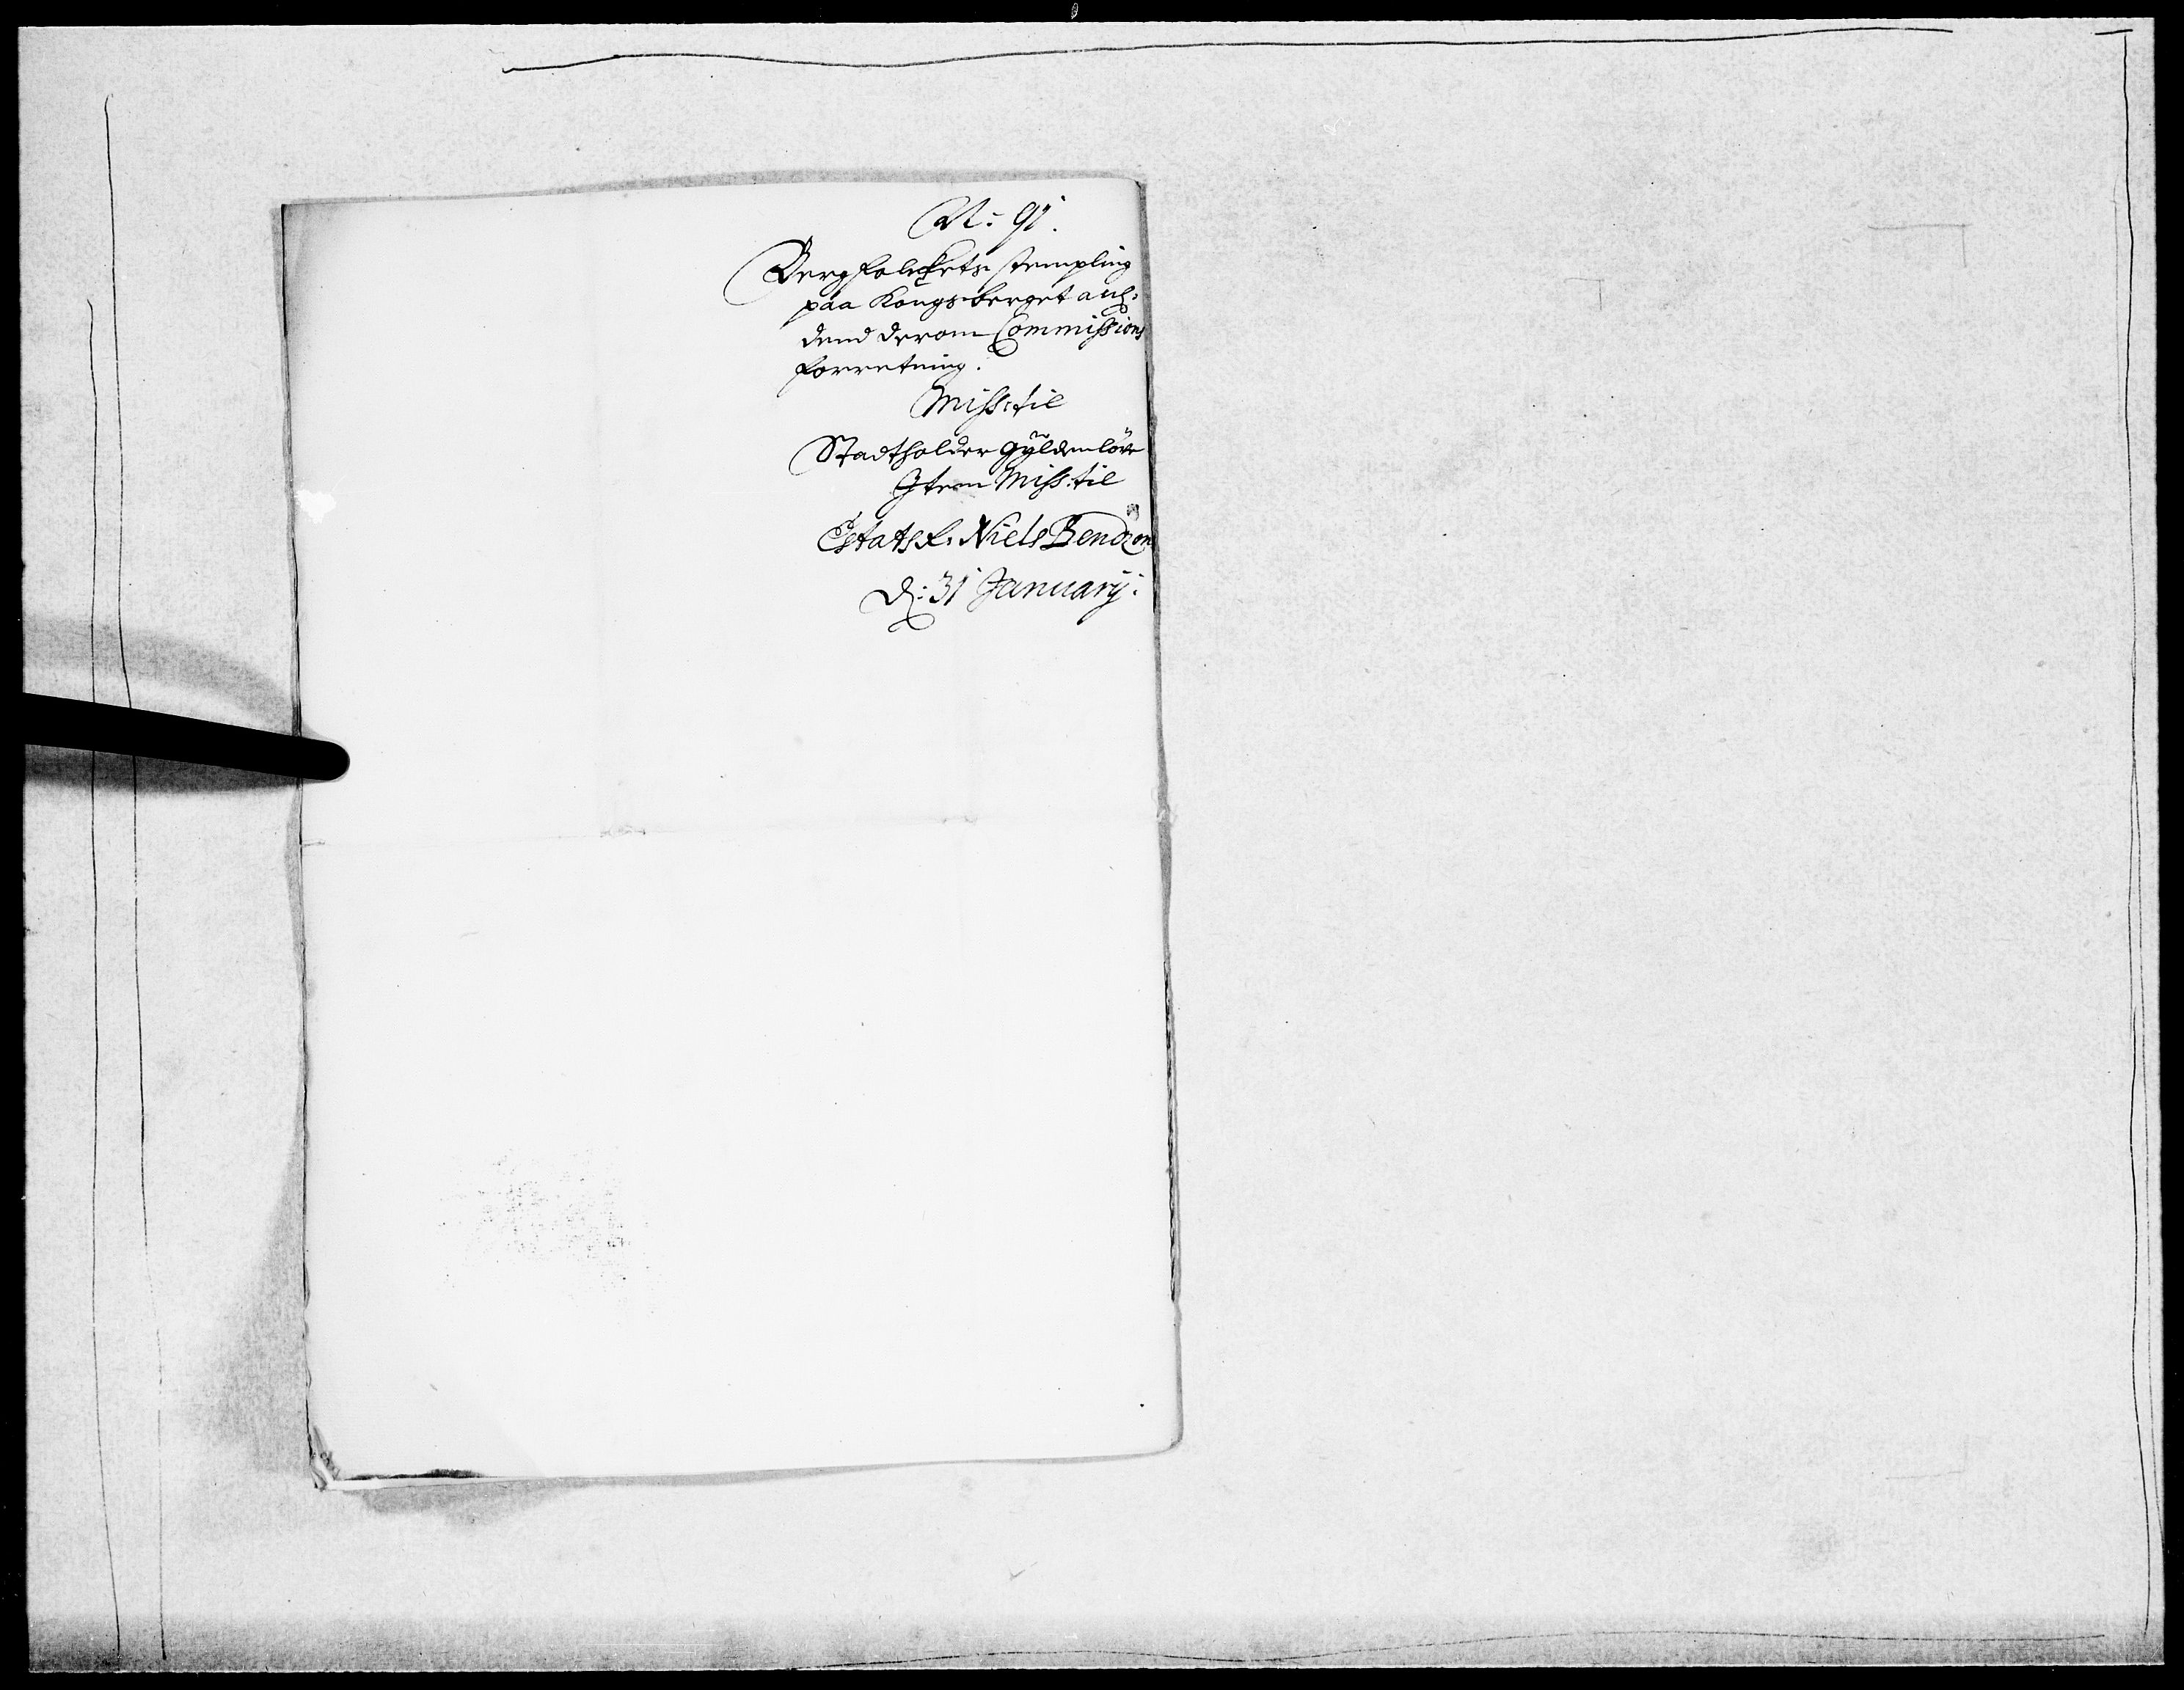 N: 91.
Bergfolckets stempling
paa Kongsberget anl:
dend derom Commissions
forretning.
Miss: til
Stadtholder Gyldenløve
Item Miss: til
Estats R: Niels Bendzon
d: 31 January: